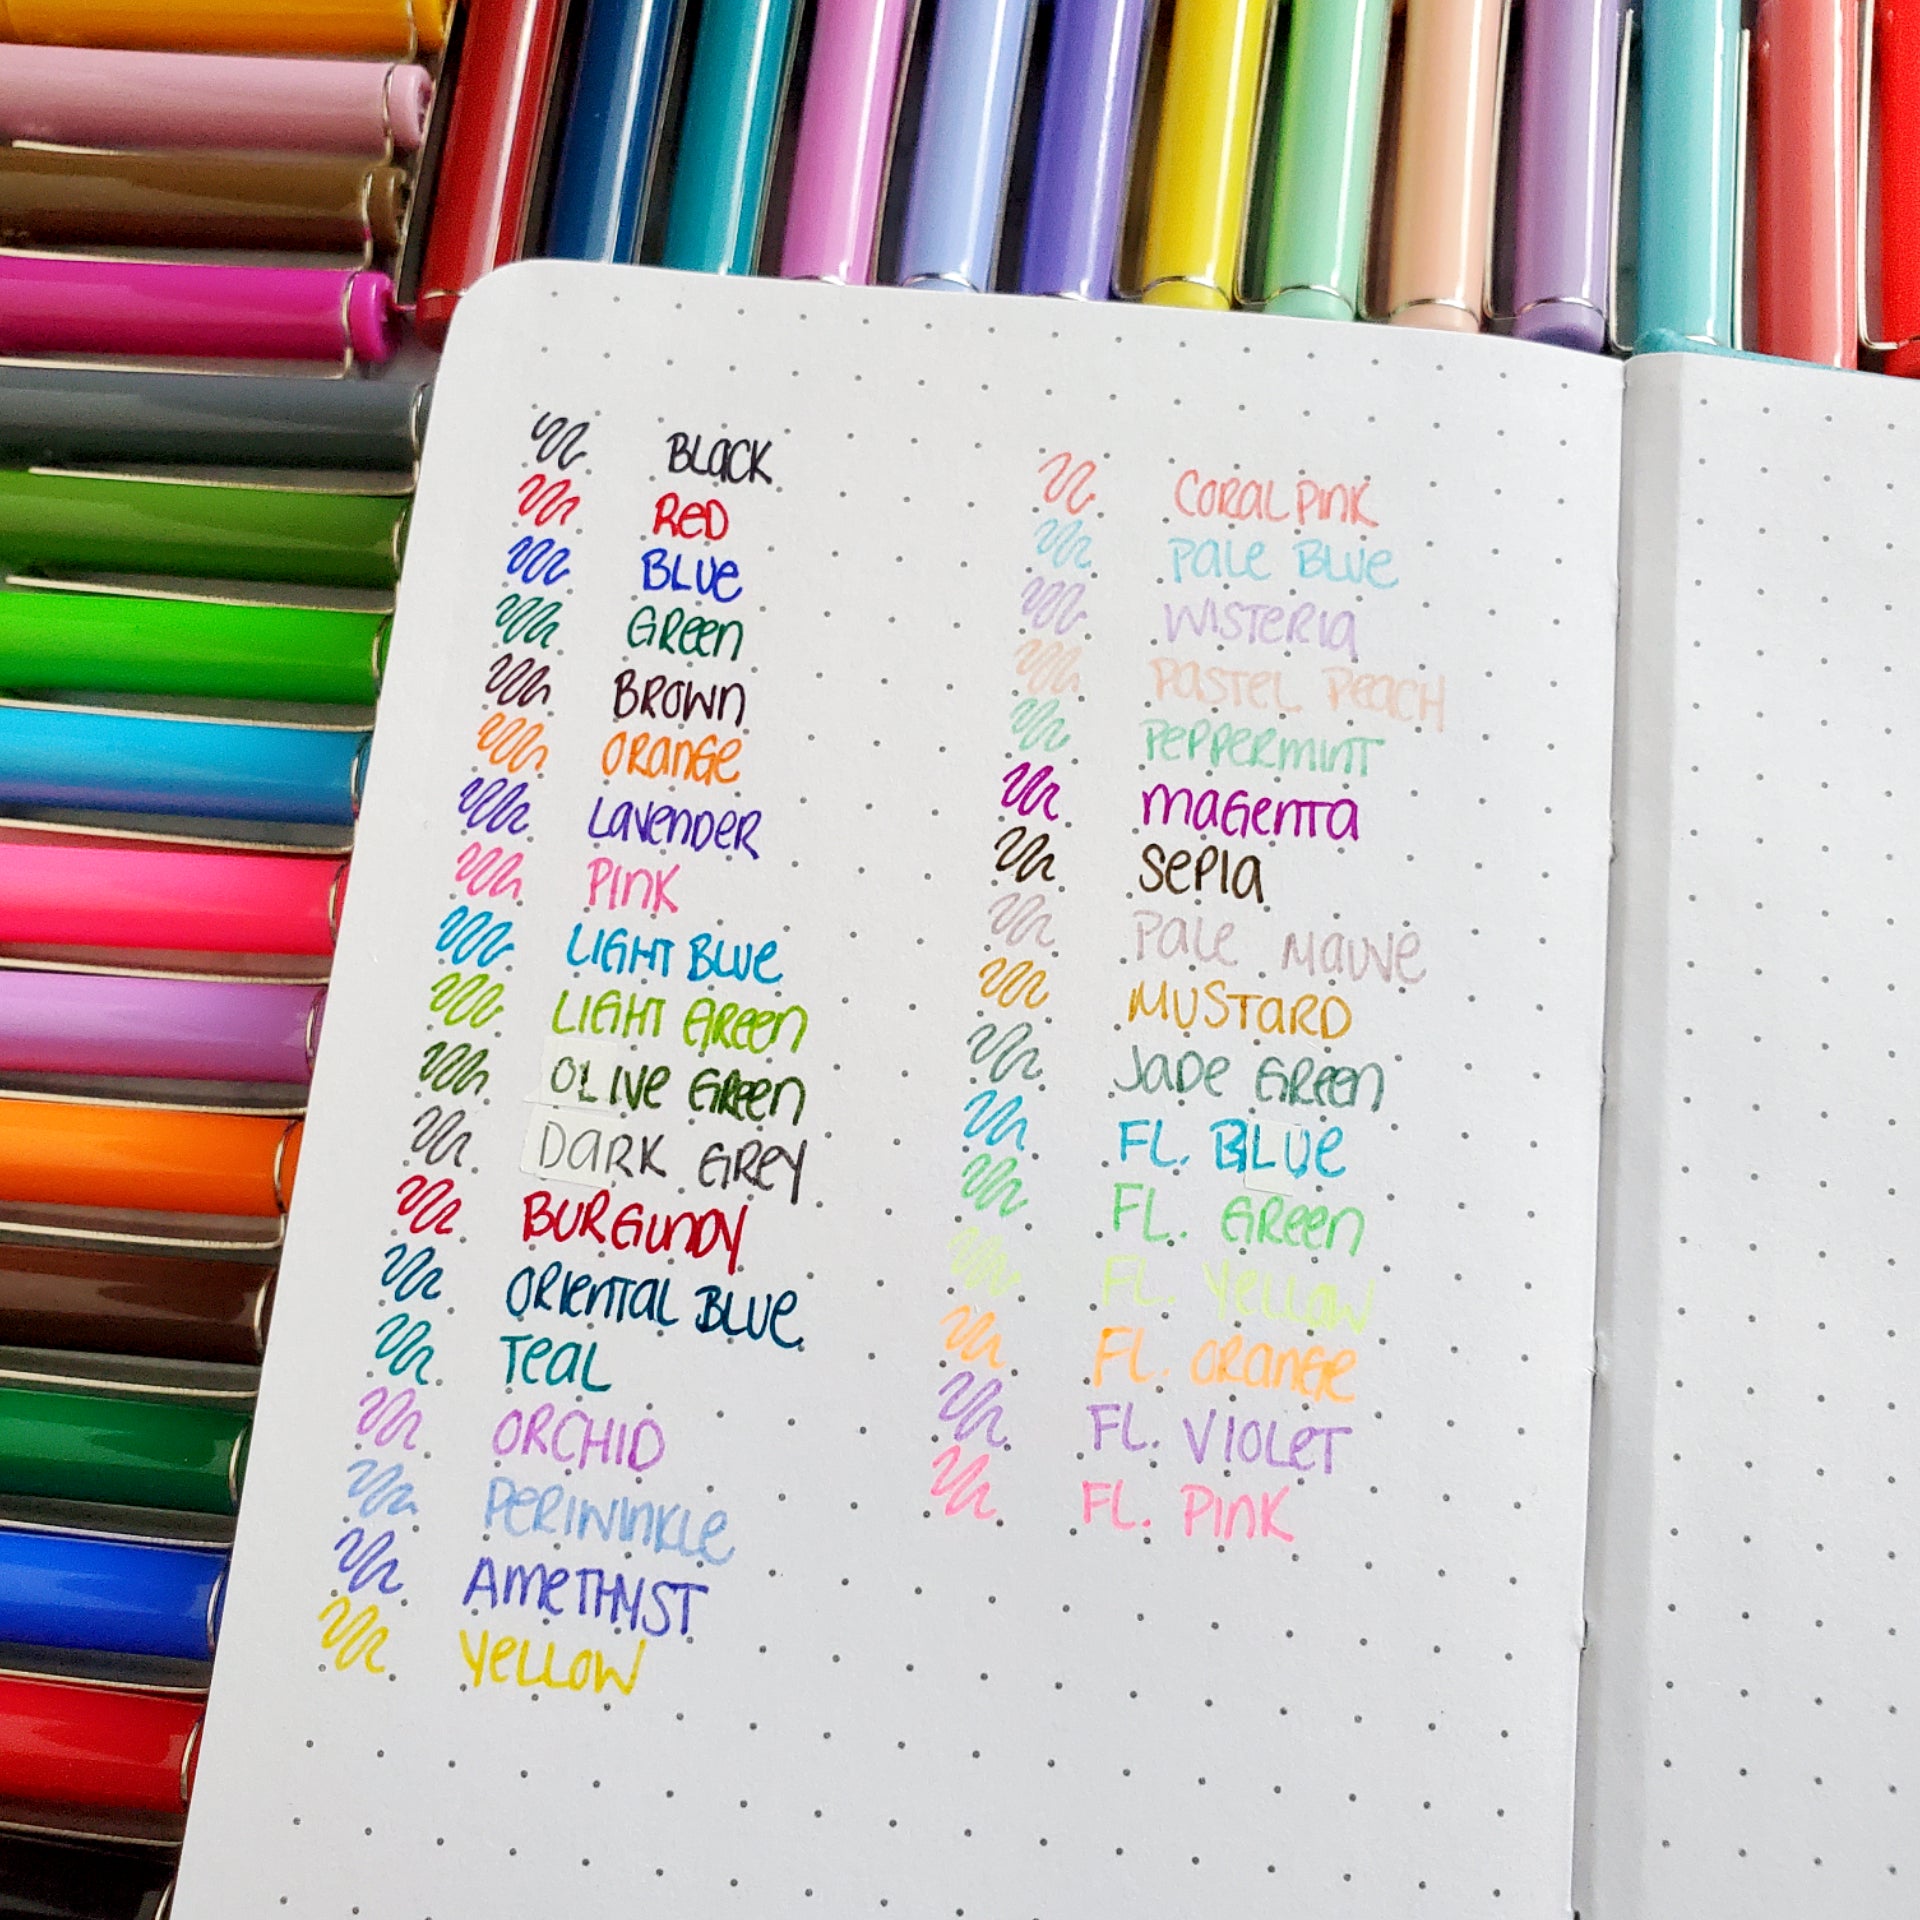 BLaCK
ReD
BLUe
GReen
BROWn
ORanGe
LavenDeR
PInK
LIGHT BLUe
LIGHT GReen
OLIve GReen
DaRK GRey
BURGUnDy
ORIenTaL BLUe
TeaL
ORCHID
PeRIWInKLe
AmeTHYST
YeLLOW
CORaL PInK
PaLe BLUe
WISTeRIa
PaSTeL PeaCH
PePPeRmInT
maGenTa
SePIa
PaLe MaUve
MUSTaRD
JaDe GReen
FL. BLUe
FL. GReen
FL. YeLLOW
FL. ORanGe
FL. VIOLeT
FL. PInK